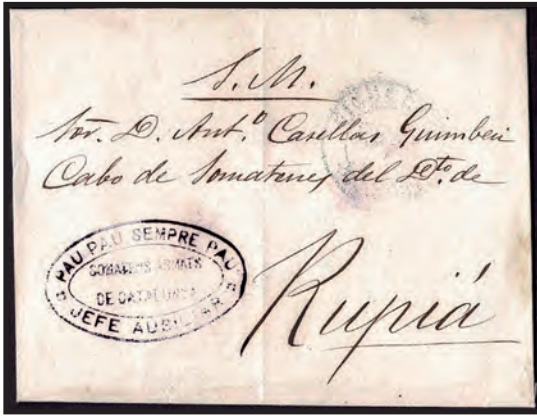 S. M.
Sor. D. Ant.º Casellas
Cabo de Somatenes del Dto. de
Rupiá
PAU PAU SEMPRE PAU
SOMATENS ARMATS
DE CATALUNYA
JEFE AUSILIAR